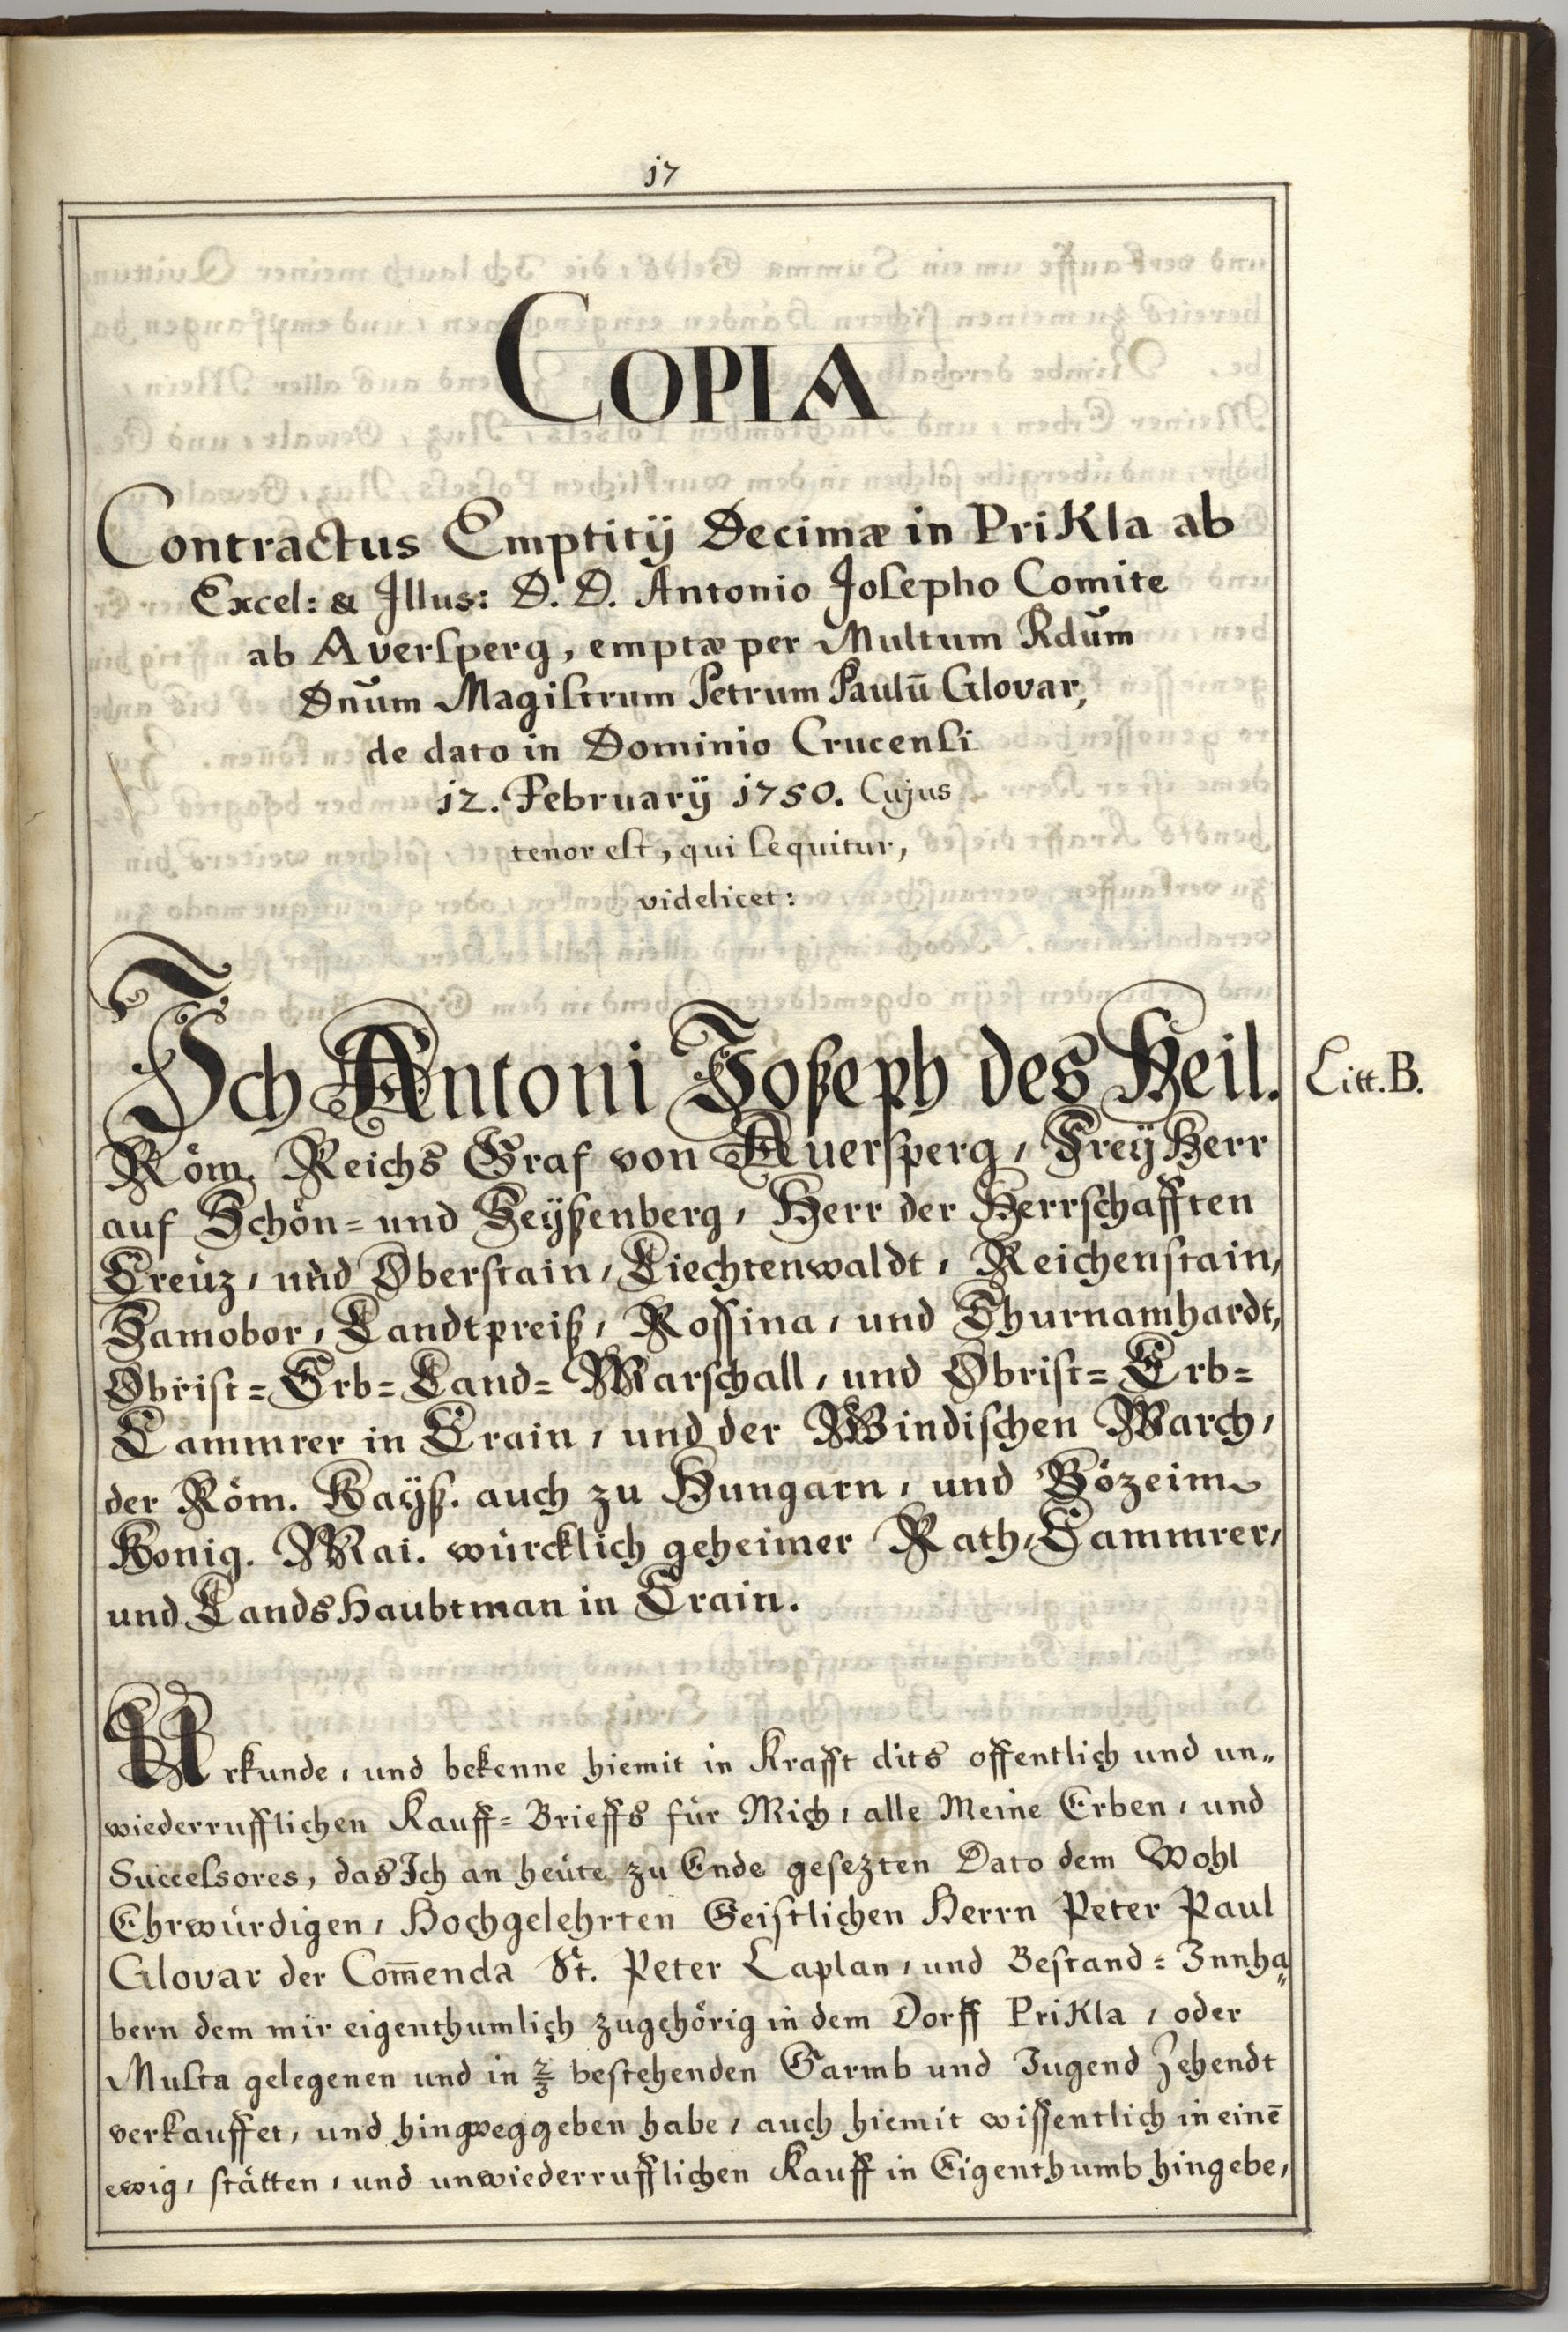 17
COPIA
Contractus Emptitÿ Decimæ in PriKla ab
Excel: & Illus: D. D. Antonio Josepho Comite
ab Aversperg, emptæ per Multum Rdũm
Dnũm Magistrum Petrum Paulū Glovar,
de dato in Dominio Crucensi
12. Februarÿ 1750. Cujus
tenor est, qui sequitur,
videlicet:
Ich Antoni Joßeph des Heil.
Litt. B.
Röm. Reichs Graf von Auersperg, Freÿ Herr
auf Schön= und Seÿßenberg, Herr der Herrschafften
Creüz, und Oberstain, Liechtenwaldt, Reichenstain,
Samobor, Landtpreiß, Rossina, und Thurnamhardt,
Obrist=Erb=Land=Marschall, und Obrist=Erb=
Cammrer in Crain, und der Windischen March,
der Röm. Kaÿß. auch zu Hungarn, und Bözeim
Konig. Mai. würcklich geheimer Rath, Cammrer,
und Landshaubtman in Crain.
Urkunde, und bekenne hiemit in Krafft dits offentlich und un„
wiederrufflichen Kauff=Brieffs für Mich, alle Meine Erben, und
Successores, das Ich an heüte zu Ende gesezten Dato dem Wohl
Ehrwürdigen, Hochgelehrten Geistlichen Herrn Peter Paul
Glovar der Com̄enda St. Peter Caplan, und Bestand=Innha„
bern dem mir eigenthumlich zugehörig in dem Dorff PriKla, oder
Multa gelegenen und in 2/3 bestehenden Garmb und Jugend Zehendt
verkauffet, und hingweggeben habe, auch hiemit wissentlich in einē
ewig, stätten, und unwiederrufflichen Kauff in Eigenthumb hingebe,